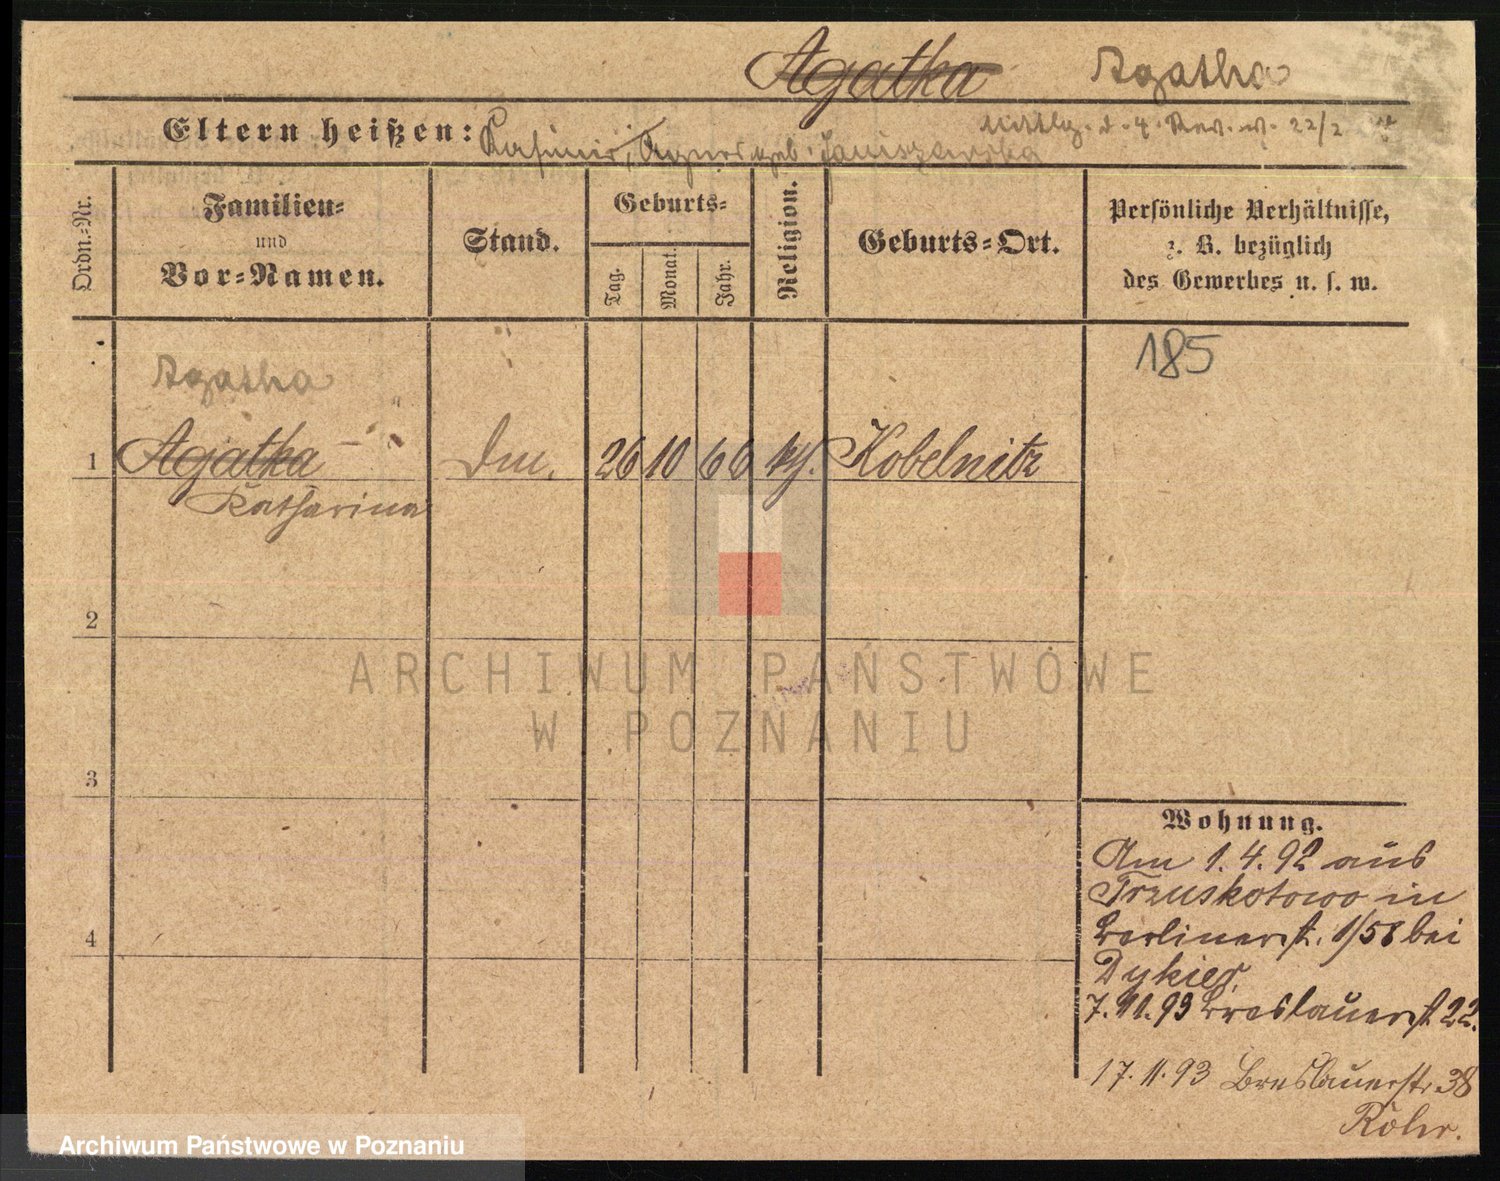 Agatka Agatha
Eltern heißen: Kasimir, Agnes geb. Januszewska
22/2
Ordn.-Nr.
Familien-
und
Vor-Namen.
Stand.
Geburts-
Tag.
Monat.
Jahr.
Religion.
Geburts-Ort.
Persönliche Verhältnisse,
z. B. bezüglich
des Gewerbes u. s. w.
185
Agatha
1 Agatka 26 10 66 Kobelnitz
Katharina
2
3
4
ARCHIWUM PAŃSTWOWE
W POZNANIU
Wohnung.
Am 1.4.92 aus
Trzuskotowo in
Berlinerst. 1/58 bei
Dykier.
7.11.93 Breslauerst 22.
17.11.93 Breslauerstr. 38
Röhr.
Archiwum Państwowe w Poznaniu